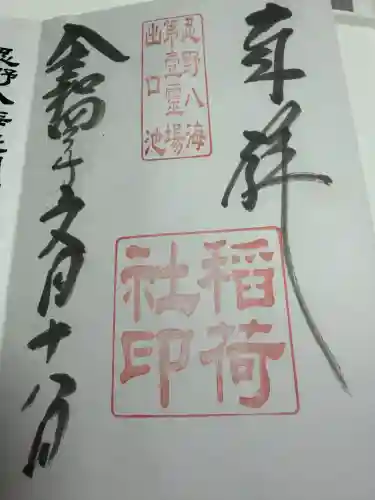 奉拝
忍野八海
第壹霊場
出口池
稲荷
社印
令和四年五月十八日
忍野八海